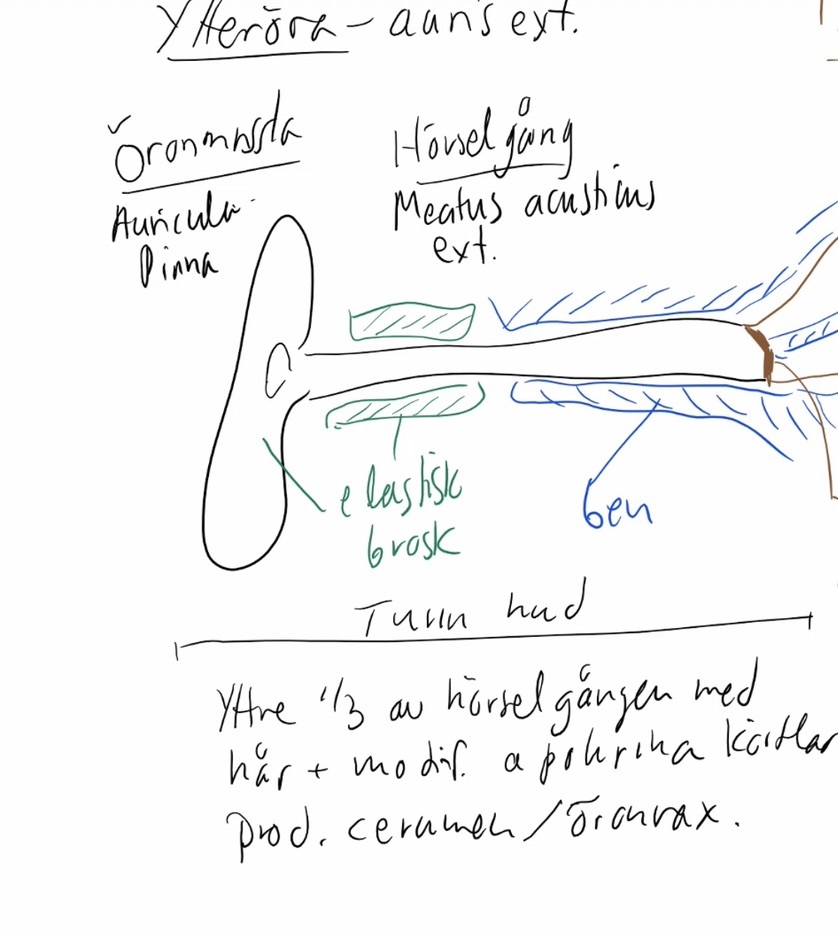 Ytteröra - auris ext.
Öronmussla
Auricula
Pinna
Hörselgång
Meatus acusticus
ext.
elastisk
brosk
ben
Tunn hud
Yttre 1/3 av hörselgången med
hår + modif. apokrina körtlar
prod. cerumen/öronvax.